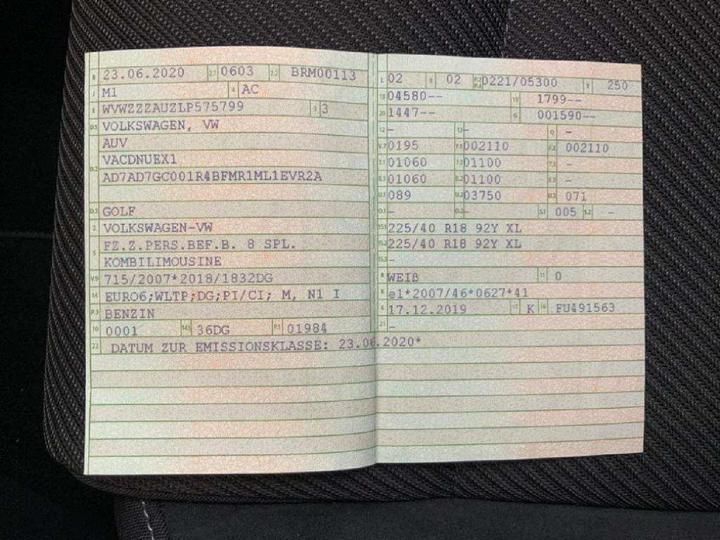 23.06.2020 0603 BRM00113
M1 AC
WVWZZZAUZLP575799 3
VOLKSWAGEN, VW
AUV
VACDNUEX1
AD7AD7GC001R4BFMR1ML1EVR2A
GOLF
VOLKSWAGEN-VW
FZ.Z.PERS.BEF.B. 8 SPL.
KOMBILIMOUSINE
715/2007*2018/1832DG
EURO6;WLTP;DG;PI/CI; M, N1 I
BENZIN
0001 36DG 01984
DATUM ZUR EMISSIONSKLASSE: 23.06.2020*
02 02 0221/05300 250
04580-- 1799--
1447-- 001590--
- - -
0195 002110 002110
01060 01100 -
01060 01100 -
089 03750 071
- - 005 -
225/40 R18 92Y XL
225/40 R18 92Y XL
-
WEIß 0
e1*2007/46*0627*41
17.12.2019 K FU491563
-